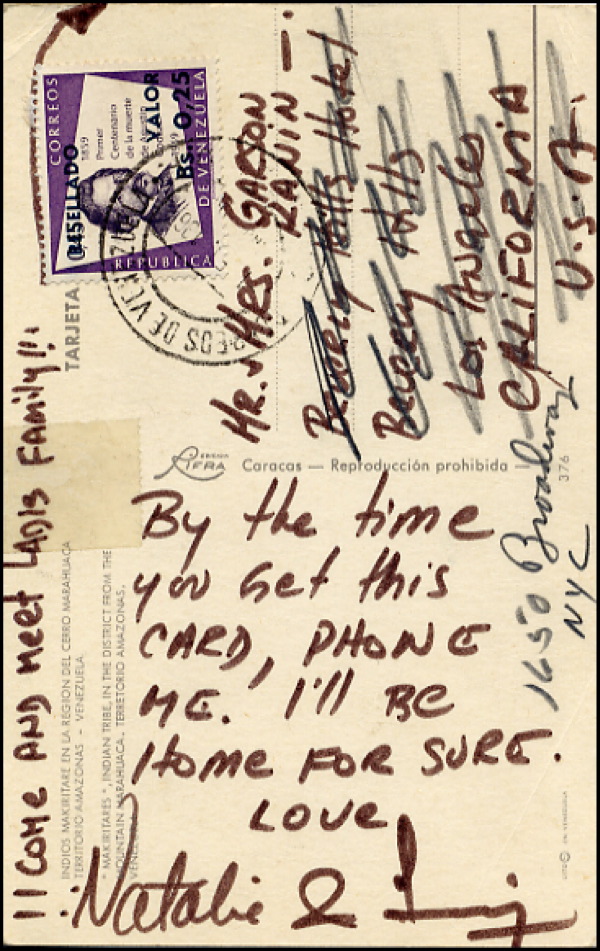 By the time
you get this
CARD, PHONE
ME. I'll BE
HOME FOR SURE.
LOVE
Natalie &
!! COME AND MEET LADIS FAMILY!!!
MR. & MRS. GARSON
KANIN —
Beverly Hills Hotel
Beverly Hills
Los Angeles
CALIFORNIA
U.S.A.
1650 Broadway
NYC
TARJETA
CORREOS
DE VENEZUELA
REPUBLICA
RESELLADO
VALOR
Bs. 0,25
1859
Primer
Centenario
de la muerte
LIFRA
Caracas — Reproducción prohibida
376
INDIOS MAKIRITARE EN LA REGION DEL CERRO MARAHUACA
TERRITORIO AMAZONAS - VENEZUELA.
"MAKIRITARES", INDIAN TRIBE, IN THE DISTRICT FROM THE
MOUNTAIN MARAHUACA. TERRITORIO AMAZONAS,